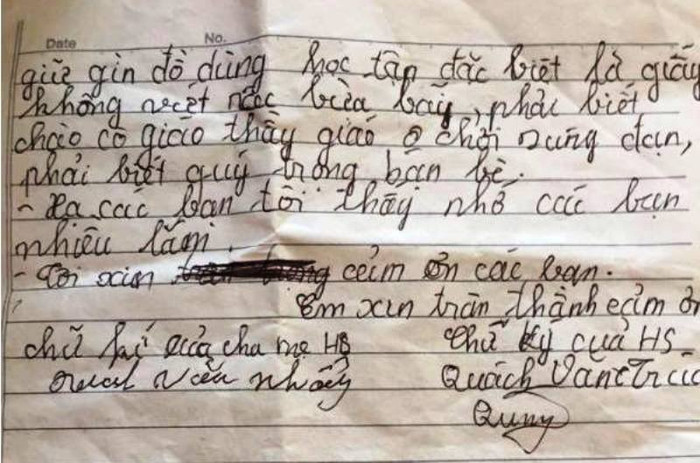 Date No.
giữ gìn đồ dùng học tập đặc biệt là giấy
không viết bừa bãy, phải biết
chào cô giáo thầy giáo chơi súng đạn,
phải biết quý trông bạn bè.
- Xa các bạn tôi thấy nhớ các bạn
nhiêu lắm.
- Tôi xin cảm ơn các bạn.
Em xin trân thành cảm ơn
chữ kí của cha mẹ HS Chữ ký của HS
Văn Quách Văn
Quny